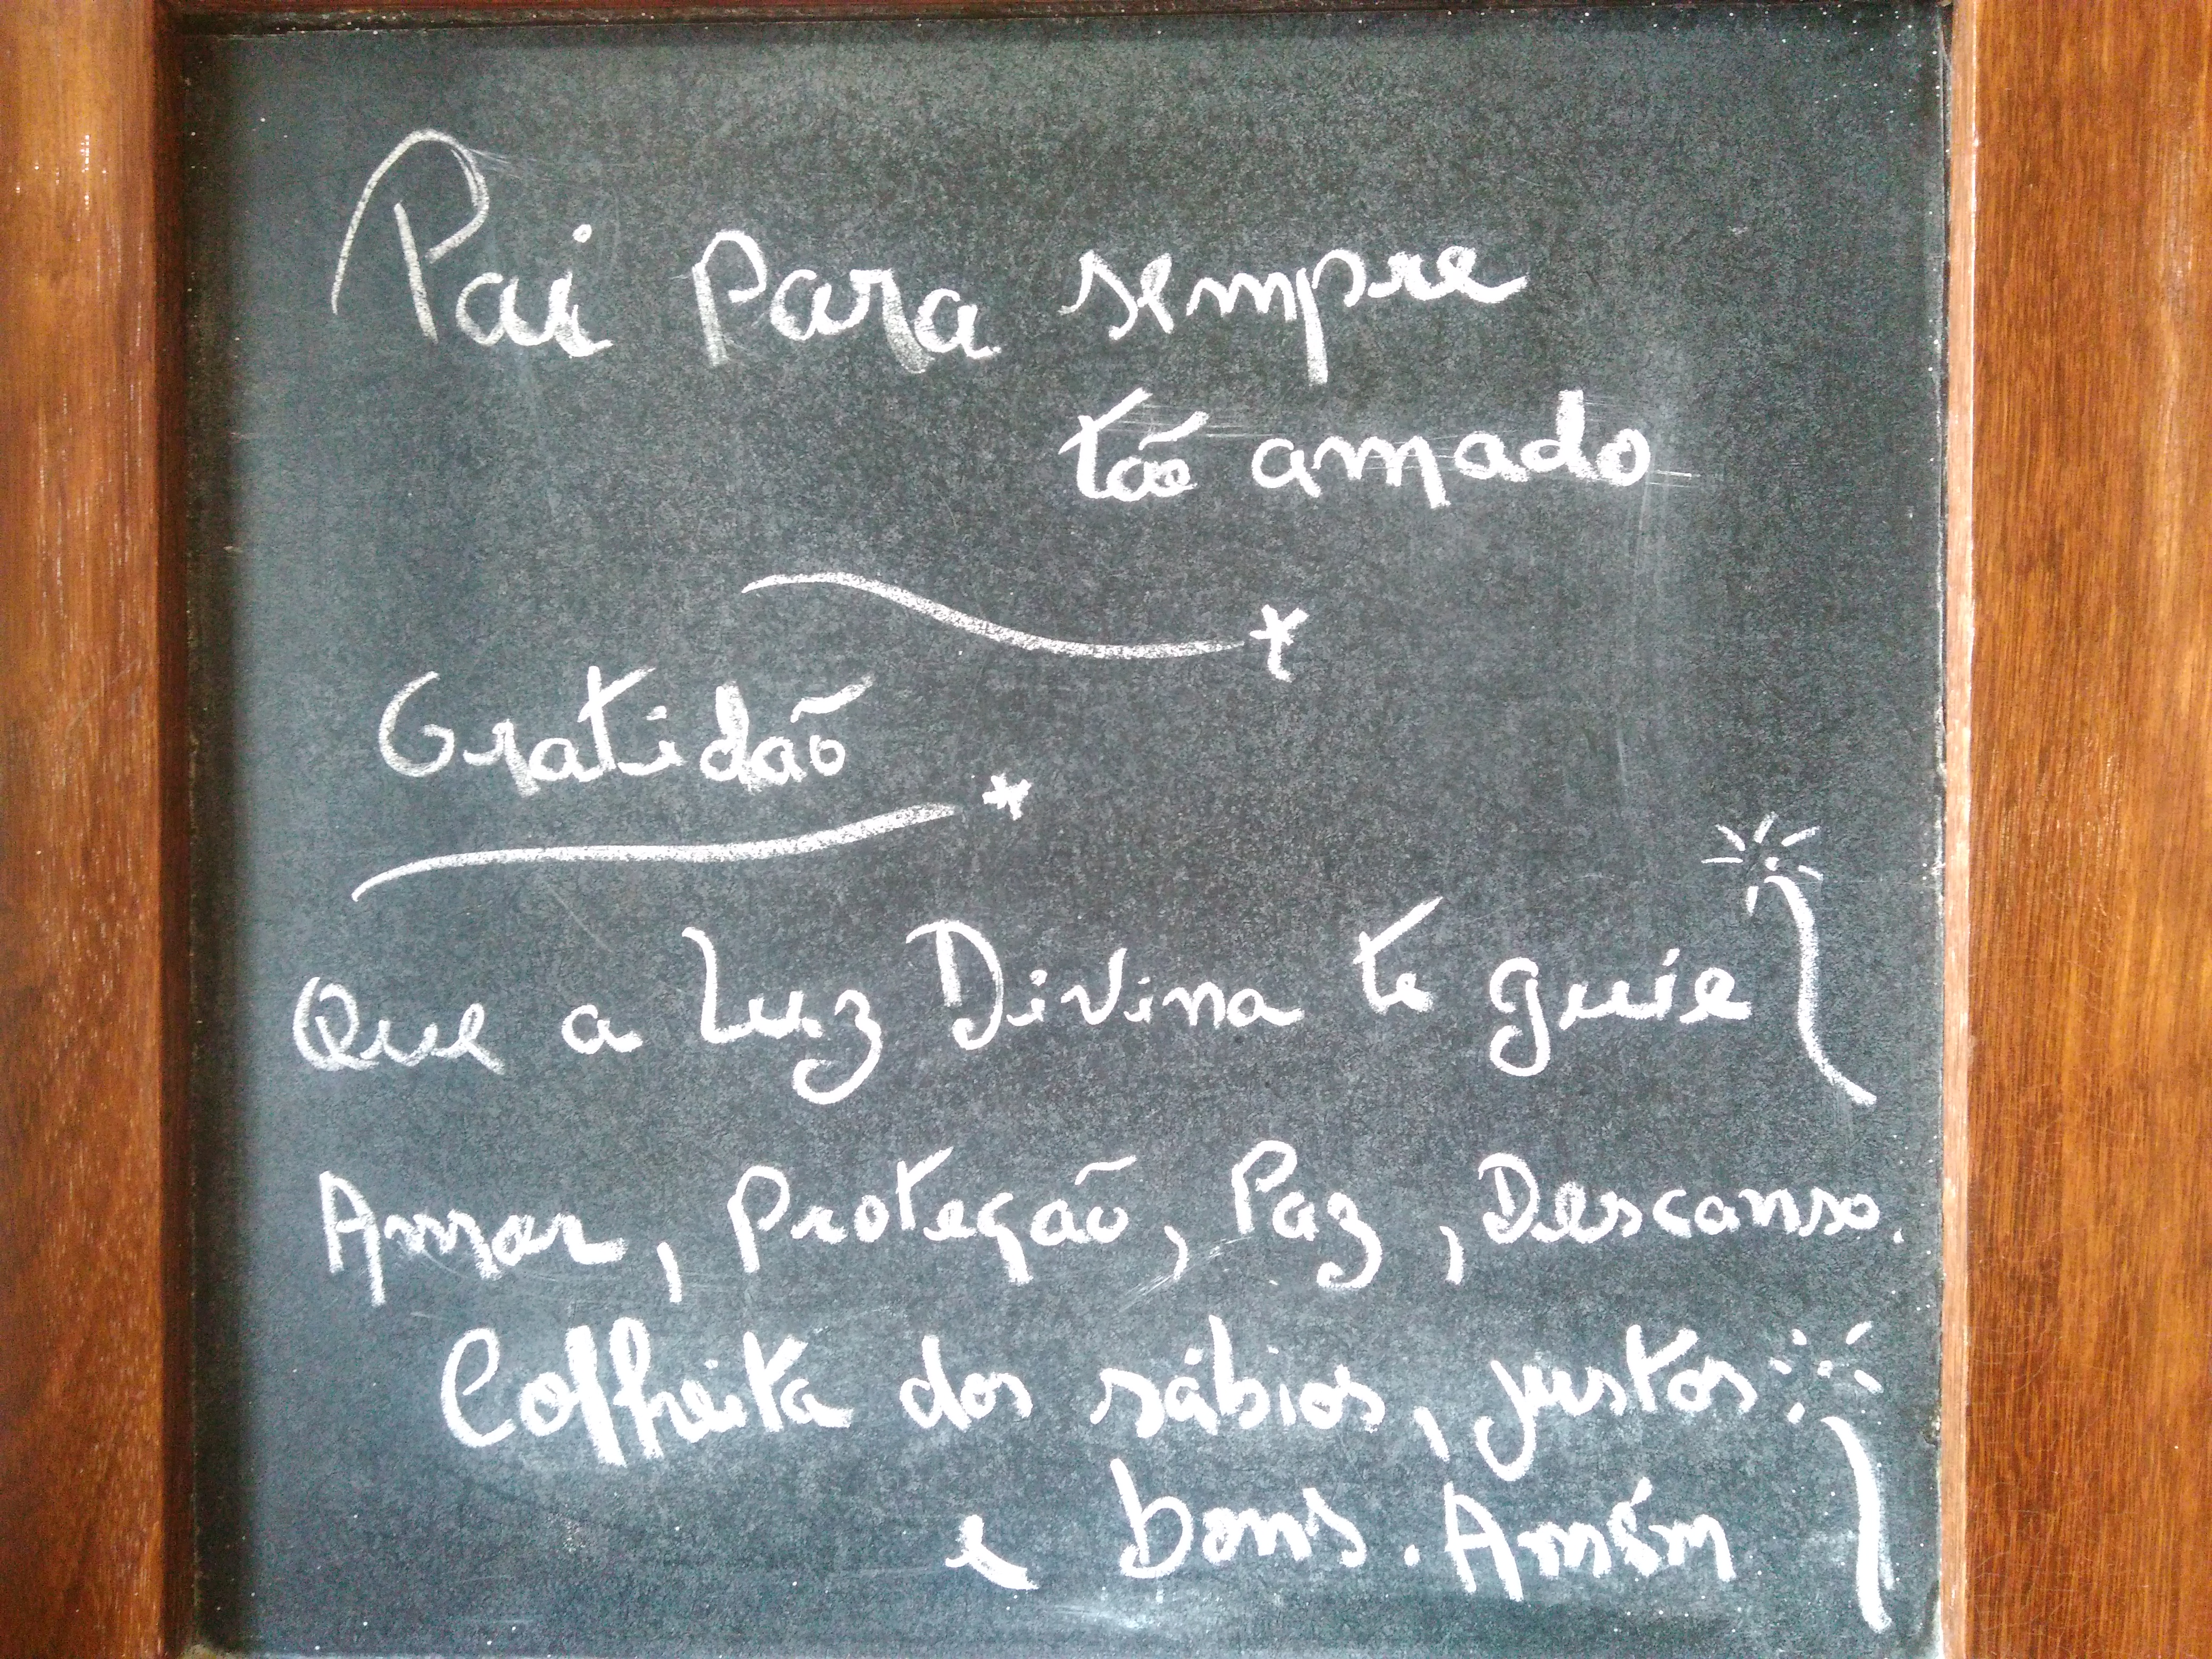 Pai para sempre
tão amado
Gratidão
Que a Luz Divina te guie
Amor, Proteção, Paz, Descanso.
Colheita dos sábios, justos
e bons. Amém